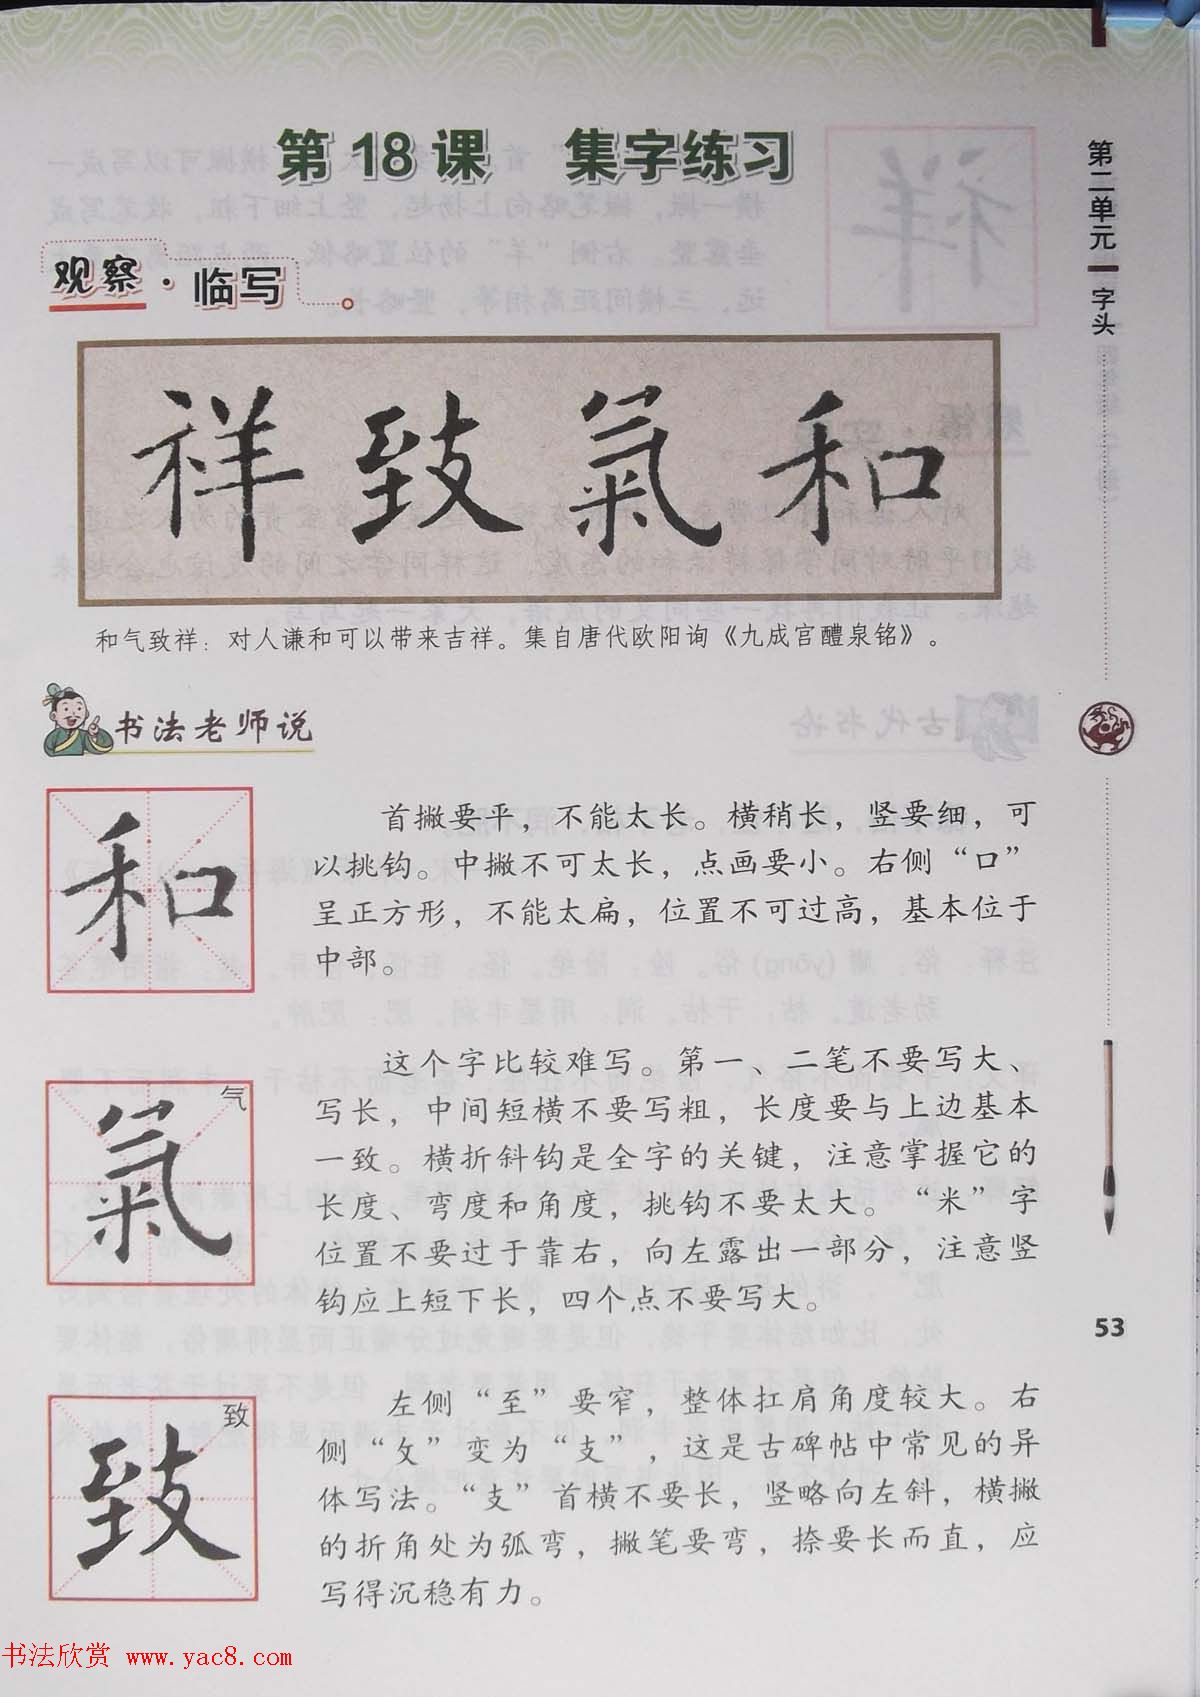 第18课 集字练习
观察·临写
祥致氣和
和气致祥：对人谦和可以带来吉祥。集自唐代欧阳询《九成宫醴泉铭》。
书法老师说
和
首撇要平，不能太长。横稍长，竖要细，可
以挑钩。中撇不可太长，点画要小。右侧“口”
呈正方形，不能太扁，位置不可过高，基本位于
中部。
气
氣
这个字比较难写。第一、二笔不要写大、
写长，中间短横不要写粗，长度要与上边基本
一致。横折斜钩是全字的关键，注意掌握它的
长度、弯度和角度，挑钩不要太大。“米”字
位置不要过于靠右，向左露出一部分，注意竖
钩应上短下长，四个点不要写大。
致
致
左侧“至”要窄，整体扛肩角度较大。右
侧“攵”变为“支”，这是古碑帖中常见的异
体写法。“支”首横不要长，竖略向左斜，横撇
的折角处为弧弯，撇笔要弯，捺要长而直，应
写得沉稳有力。
第二单元 字头
53
书法欣赏 www.yac8.com